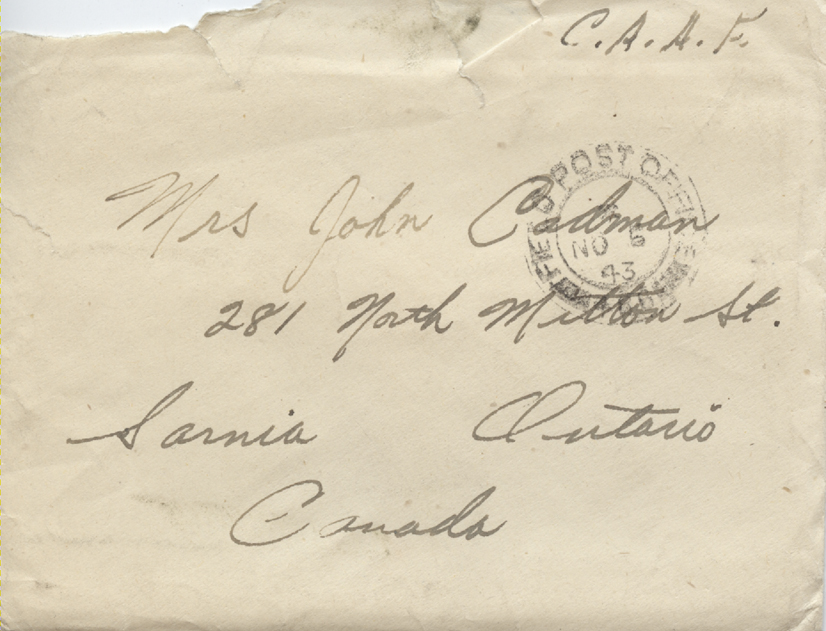 FIELD POST OFFICE
NO
43
Mrs John Cadman
281 North Mitton St.
Sarnia Ontario
Canada